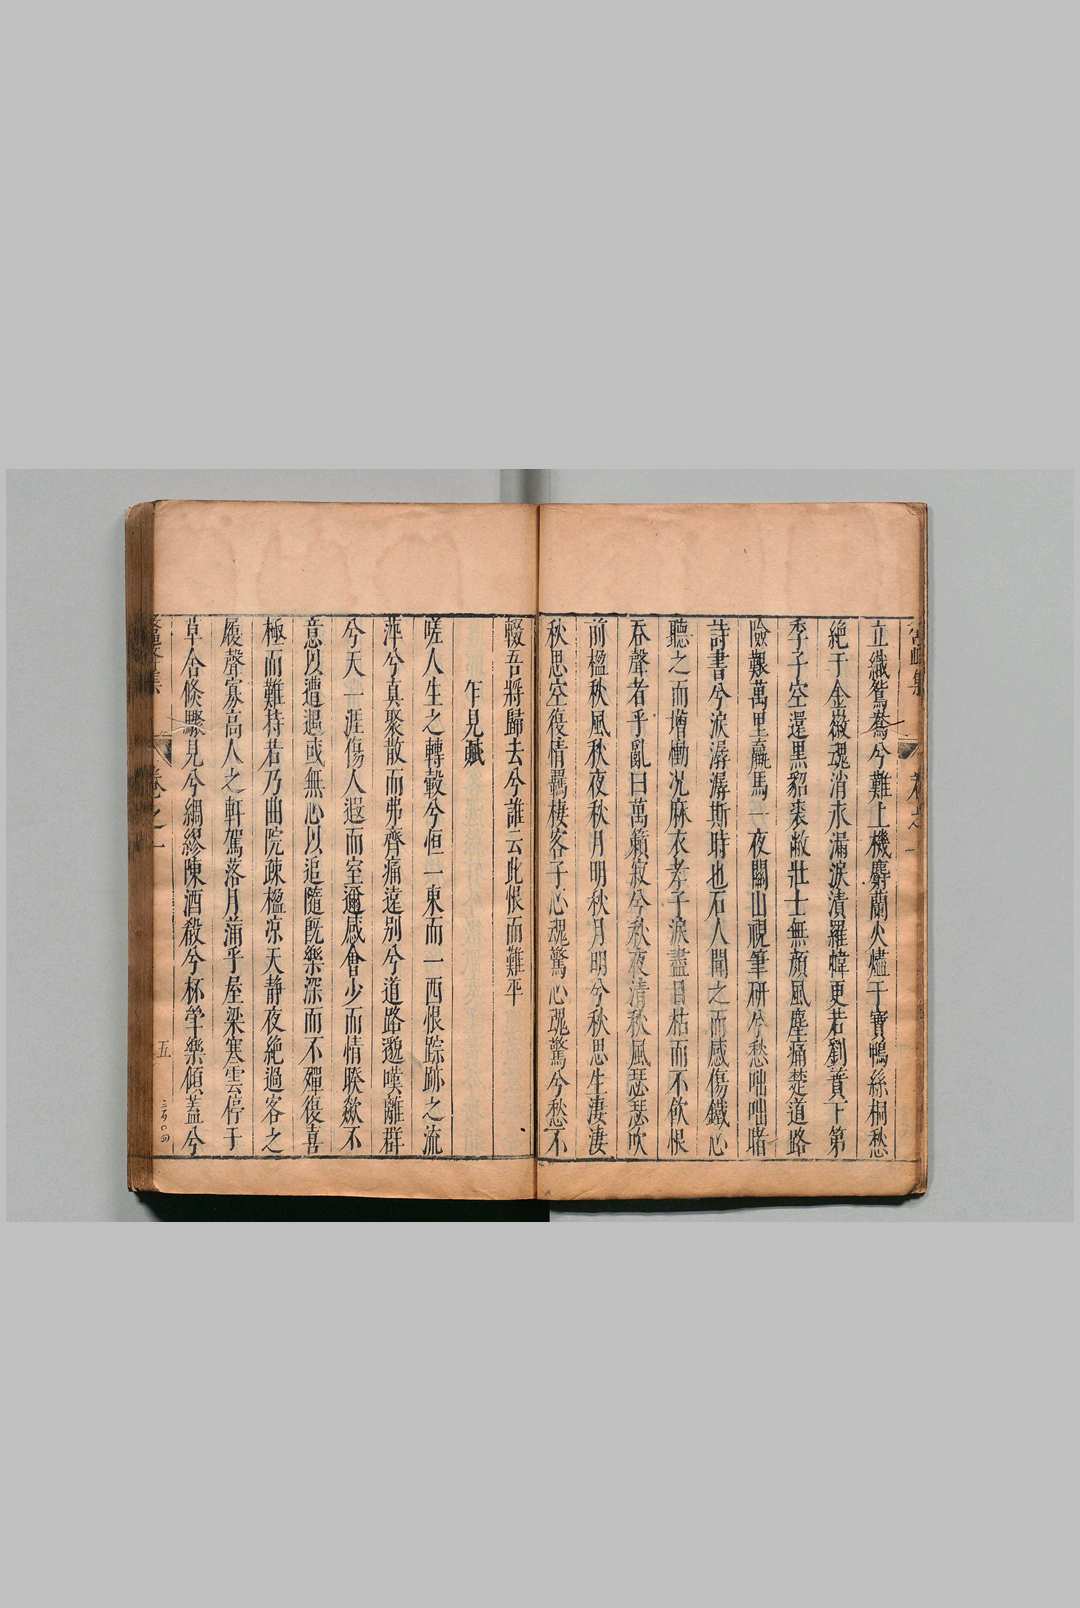 立纖鴛鴦兮難上機麝蘭火燼于寶鴨絲桐愁
絕于金徽魂消永漏淚漬羅幃更若劉蕡下第
季子空還黑貂裘敝壯士無顏風塵痛楚道路
險艱萬里羸馬一夜關山視筆研兮愁咄咄睹
詩書兮淚潺潺斯時也石人聞之而感傷鐵心
聽之而增慟况麻衣孝子淚盡目枯而不飲恨
吞聲者乎亂曰萬籟寂兮秋夜清秋風瑟瑟吹
前楹秋風秋夜秋月明秋月明兮秋思生淒淒
秋思空復情羇棲客子心魂驚心魂驚兮愁不
輟吾將歸去兮誰云此恨而難平
乍見賦
嗟人生之轉轂兮恒一東而一西恨踪跡之流
萍兮真聚散而弗齊痛遠別兮道路邈嘆離群
兮天一涯傷人遐而室邇感會少而情暌歘不
意以遭遇或無心以追隨旣樂深而不殫復喜
極而難持若乃曲院疎楹凉天静夜絶過客之
履聲寡高人之軒駕落月蒲乎屋梁寒雲停于
草舍倐驟見兮綢繆陳酒殽兮杯斝樂傾蓋兮
卷之一
五